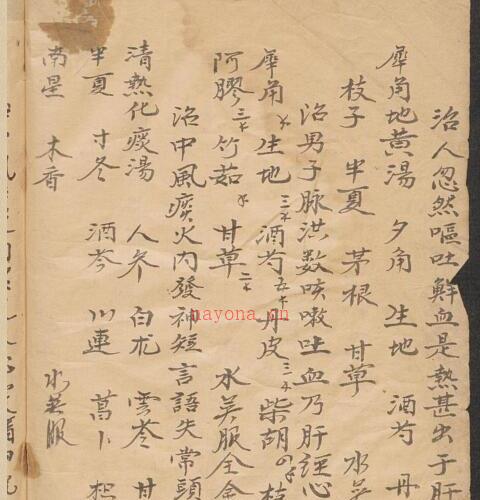 治人忽然嘔吐鮮血是熱甚出于肝
犀角地黄湯 夕角 生地 酒芍 丹
枝子 半夏 茅根 甘草 水
治男子脉洪数咳嗽吐血乃肝經心
犀角 生地 三 酒芍 五 丹皮 三 柴胡
阿膠 三 竹茹 甘草 二 水煎服全
治中風痰火内發神短言語失常頭
清熱化痰湯 人参 白朮 雲苓 甘
半夏 寸冬 酒芩 川連 菖卜
南星 木香 水煎服
nayona.cn